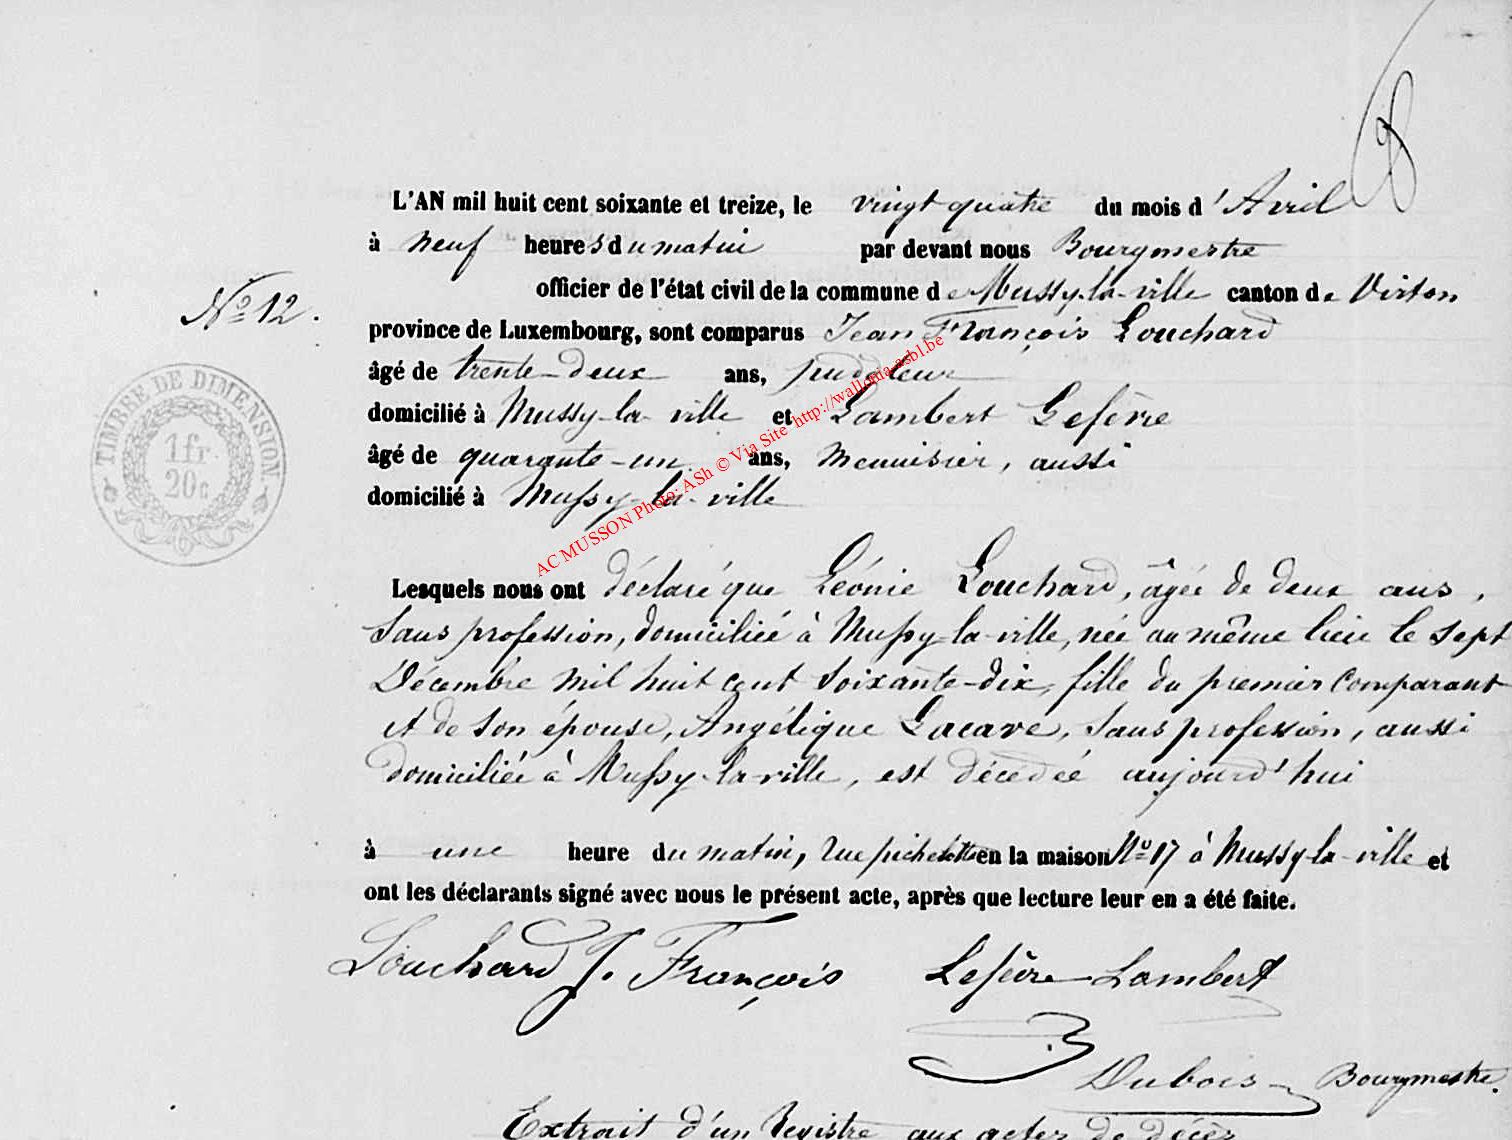 L'AN mil huit cent soixante et treize, le vingt quatre du mois d'Avril
à neuf heures du matin par devant nous Bourgmestre
officier de l'état civil de la commune de Mussy-la-ville canton de Virton
Nº 12.
province de Luxembourg, sont comparus Jean François Louchard
âgé de trente-deux ans, pudleur
domicilié à Mussy-la-ville et Lambert Lefèvre
âgé de quarante-un ans, Menuisier, aussi
domicilié à Mussy-la-ville
TIMBRE DE DIMENSION.
1 fr.
20c
AC MUSSON Photo: ASh © Via Site http://wallonia-asbl.be
Lesquels nous ont déclaré que Léonie Louchard, âgée de deux ans,
sans profession, domiciliée à Mussy-la-ville, née au même lieu le sept
Décembre mil huit cent soixante-dix, fille du premier Comparant
et de son épouse, Angélique Lacave, sans profession, aussi
domiciliée à Mussy-la-ville, est décédée aujourd'hui
à une heure du matin, rue en la maison Nº 17 à Mussy-la-ville et
ont les déclarants signé avec nous le présent acte, après que lecture leur en a été faite.
Louchard J. François Lefèvre Lambert
Dubois Bourgmestre.
Extrait d'un Registre aux actes de décès